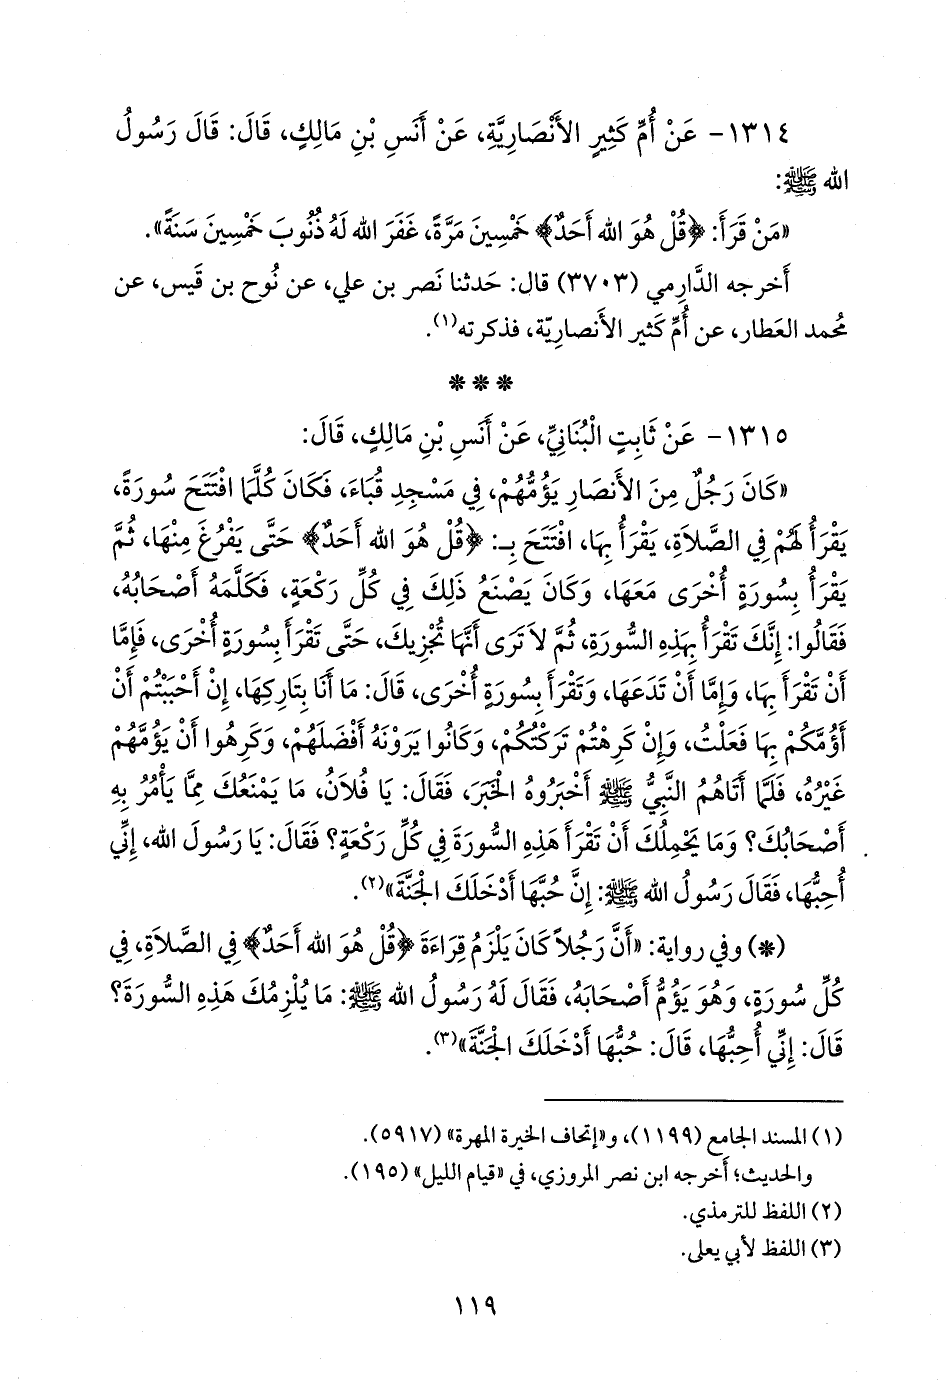 ١٣١٤- عَنْ أُمِّ كَثِيرٍ الأَنْصَارِيَّةِ، عَنْ أَنَسِ بْنِ مَالِكٍ، قَالَ: قَالَ رَسُولُ
الله ﷺ:
«مَنْ قَرَأَ: ﴿قُلْ هُوَ الله أَحَدٌ﴾ خَمْسِينَ مَرَّةً، غَفَرَ الله لَهُ ذُنُوبَ خَمْسِينَ سَنَةً».
أَخرجه الدَّارِمي (٣٧٠٣) قال: حَدثنا نَصر بن علي، عن نُوح بن قَيس، عن
مُحمد العَطار، عن أُمِّ كَثير الأَنصاريّة، فذكرته(١).
***
١٣١٥- عَنْ ثَابِتٍ الْبُنَانِيِّ، عَنْ أَنَسِ بْنِ مَالِكٍ، قَالَ:
«كَانَ رَجُلٌ مِنَ الأَنصَارِ يَؤُمُّهُمْ، فِي مَسْجِدِ قُبَاءَ، فَكَانَ كُلَّمَا افْتَتَحَ سُورَةً،
يَقْرَأُ لَهُمْ فِي الصَّلاَةِ، يَقْرَأُ بِهَا، افْتَتَحَ بِـ: ﴿قُلْ هُوَ الله أَحَدٌ﴾ حَتَّى يَفْرُغَ مِنْهَا، ثُمَّ
يَقْرَأُ بِسُورَةٍ أُخْرَى مَعَهَا، وَكَانَ يَصْنَعُ ذَلِكَ فِي كُلِّ رَكْعَةٍ، فَكَلَّمَهُ أَصْحَابُهُ،
فَقَالُوا: إِنَّكَ تَقْرَأُ بِهَذِهِ السُّورَةِ، ثُمَّ لاَ تَرَى أَنَّهَا تُجْزِيكَ، حَتَّى تَقْرَأَ بِسُورَةٍ أُخْرَى، فَإِمَّا
أَنْ تَقْرَأَ بِهَا، وَإِمَّا أَنْ تَدَعَهَا، وَتَقْرَأَ بِسُورَةٍ أُخْرَى، قَالَ: مَا أَنَا بِتَارِكِهَا، إِنْ أَحْبَبْتُمْ أَنْ
أَؤُمَّكُمْ بِهَا فَعَلْتُ، وَإِنْ كَرِهْتُمْ تَرَكْتُكُمْ، وَكَانُوا يَرَوْنَهُ أَفْضَلَهُمْ، وَكَرِهُوا أَنْ يَؤُمَّهُمْ
غَيْرُهُ، فَلَمَّا أَتَاهُمُ النَّبِيُّ ﷺ أَخْبَرُوهُ الْخَبَرَ، فَقَالَ: يَا فُلاَنُ، مَا يَمْنَعُكَ مِمَّا يَأْمُرُ بِهِ
أَصْحَابُكَ؟ وَمَا يَحْمِلُكَ أَنْ تَقْرَأَ هَذِهِ السُّورَةَ فِي كُلِّ رَكْعَةٍ؟ فَقَالَ: يَا رَسُولَ الله، إِنِّي
أُحِبُّهَا، فَقَالَ رَسُولُ الله ﷺ: إِنَّ حُبَّهَا أَدْخَلَكَ الْجَنَّةَ»(٢).
(*) وفي رواية: «أَنَّ رَجُلاً كَانَ يَلْزَمُ قِرَاءَةَ ﴿قُلْ هُوَ الله أَحَدٌ﴾ فِي الصَّلاَةِ، فِي
كُلِّ سُورَةٍ، وَهُوَ يَؤُمُّ أَصْحَابَهُ، فَقَالَ لَهُ رَسُولُ الله ﷺ: مَا يُلْزِمُكَ هَذِهِ السُّورَةَ؟
قَالَ: إِنِّي أُحِبُّهَا، قَالَ: حُبُّهَا أَدْخَلَكَ الْجَنَّةَ»(٣).
(١) المسند الجامع (١١٩٩)، و«إتحاف الخيرة المهرة» (٥٩١٧).
والحديث؛ أَخرجه ابن نصر المروزي، في «قيام الليل» (١٩٥).
(٢) اللفظ للترمذي.
(٣) اللفظ لأبي يعلى.
١١٩